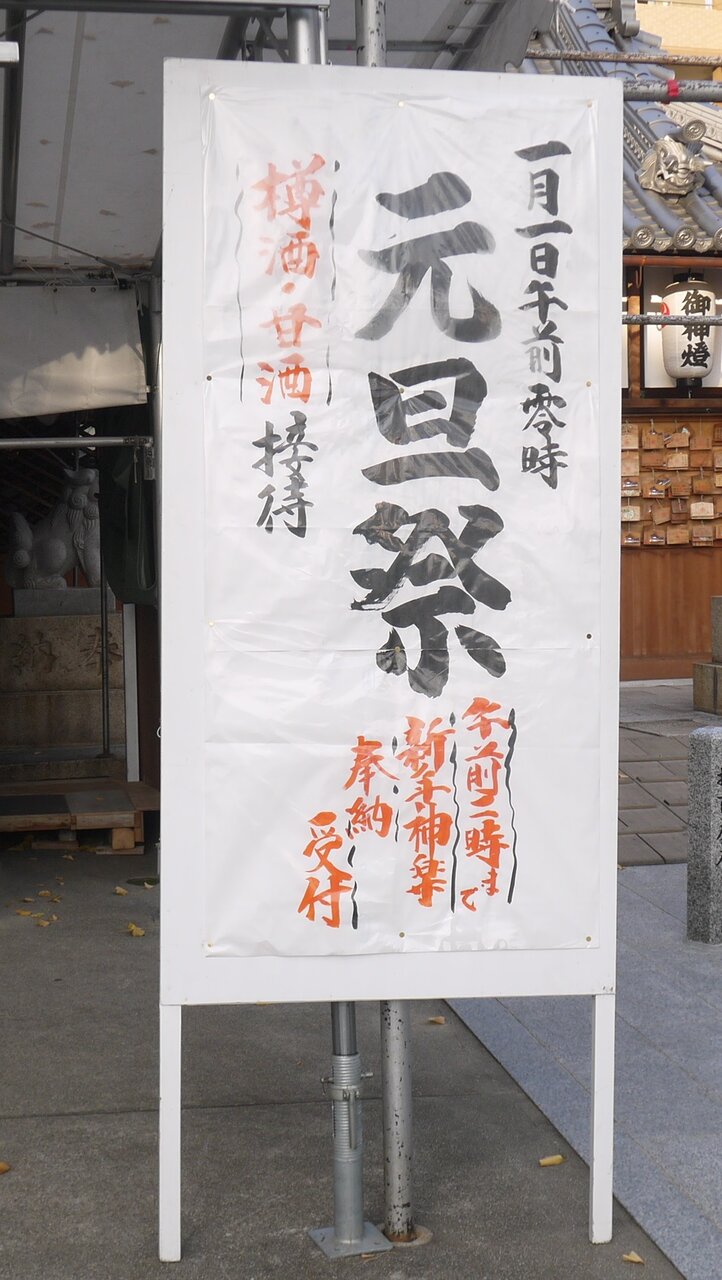 一月一日午前零時
元旦祭
午前二時まで
新年神楽
奉納
受付
樽酒・甘酒接待
御神燈